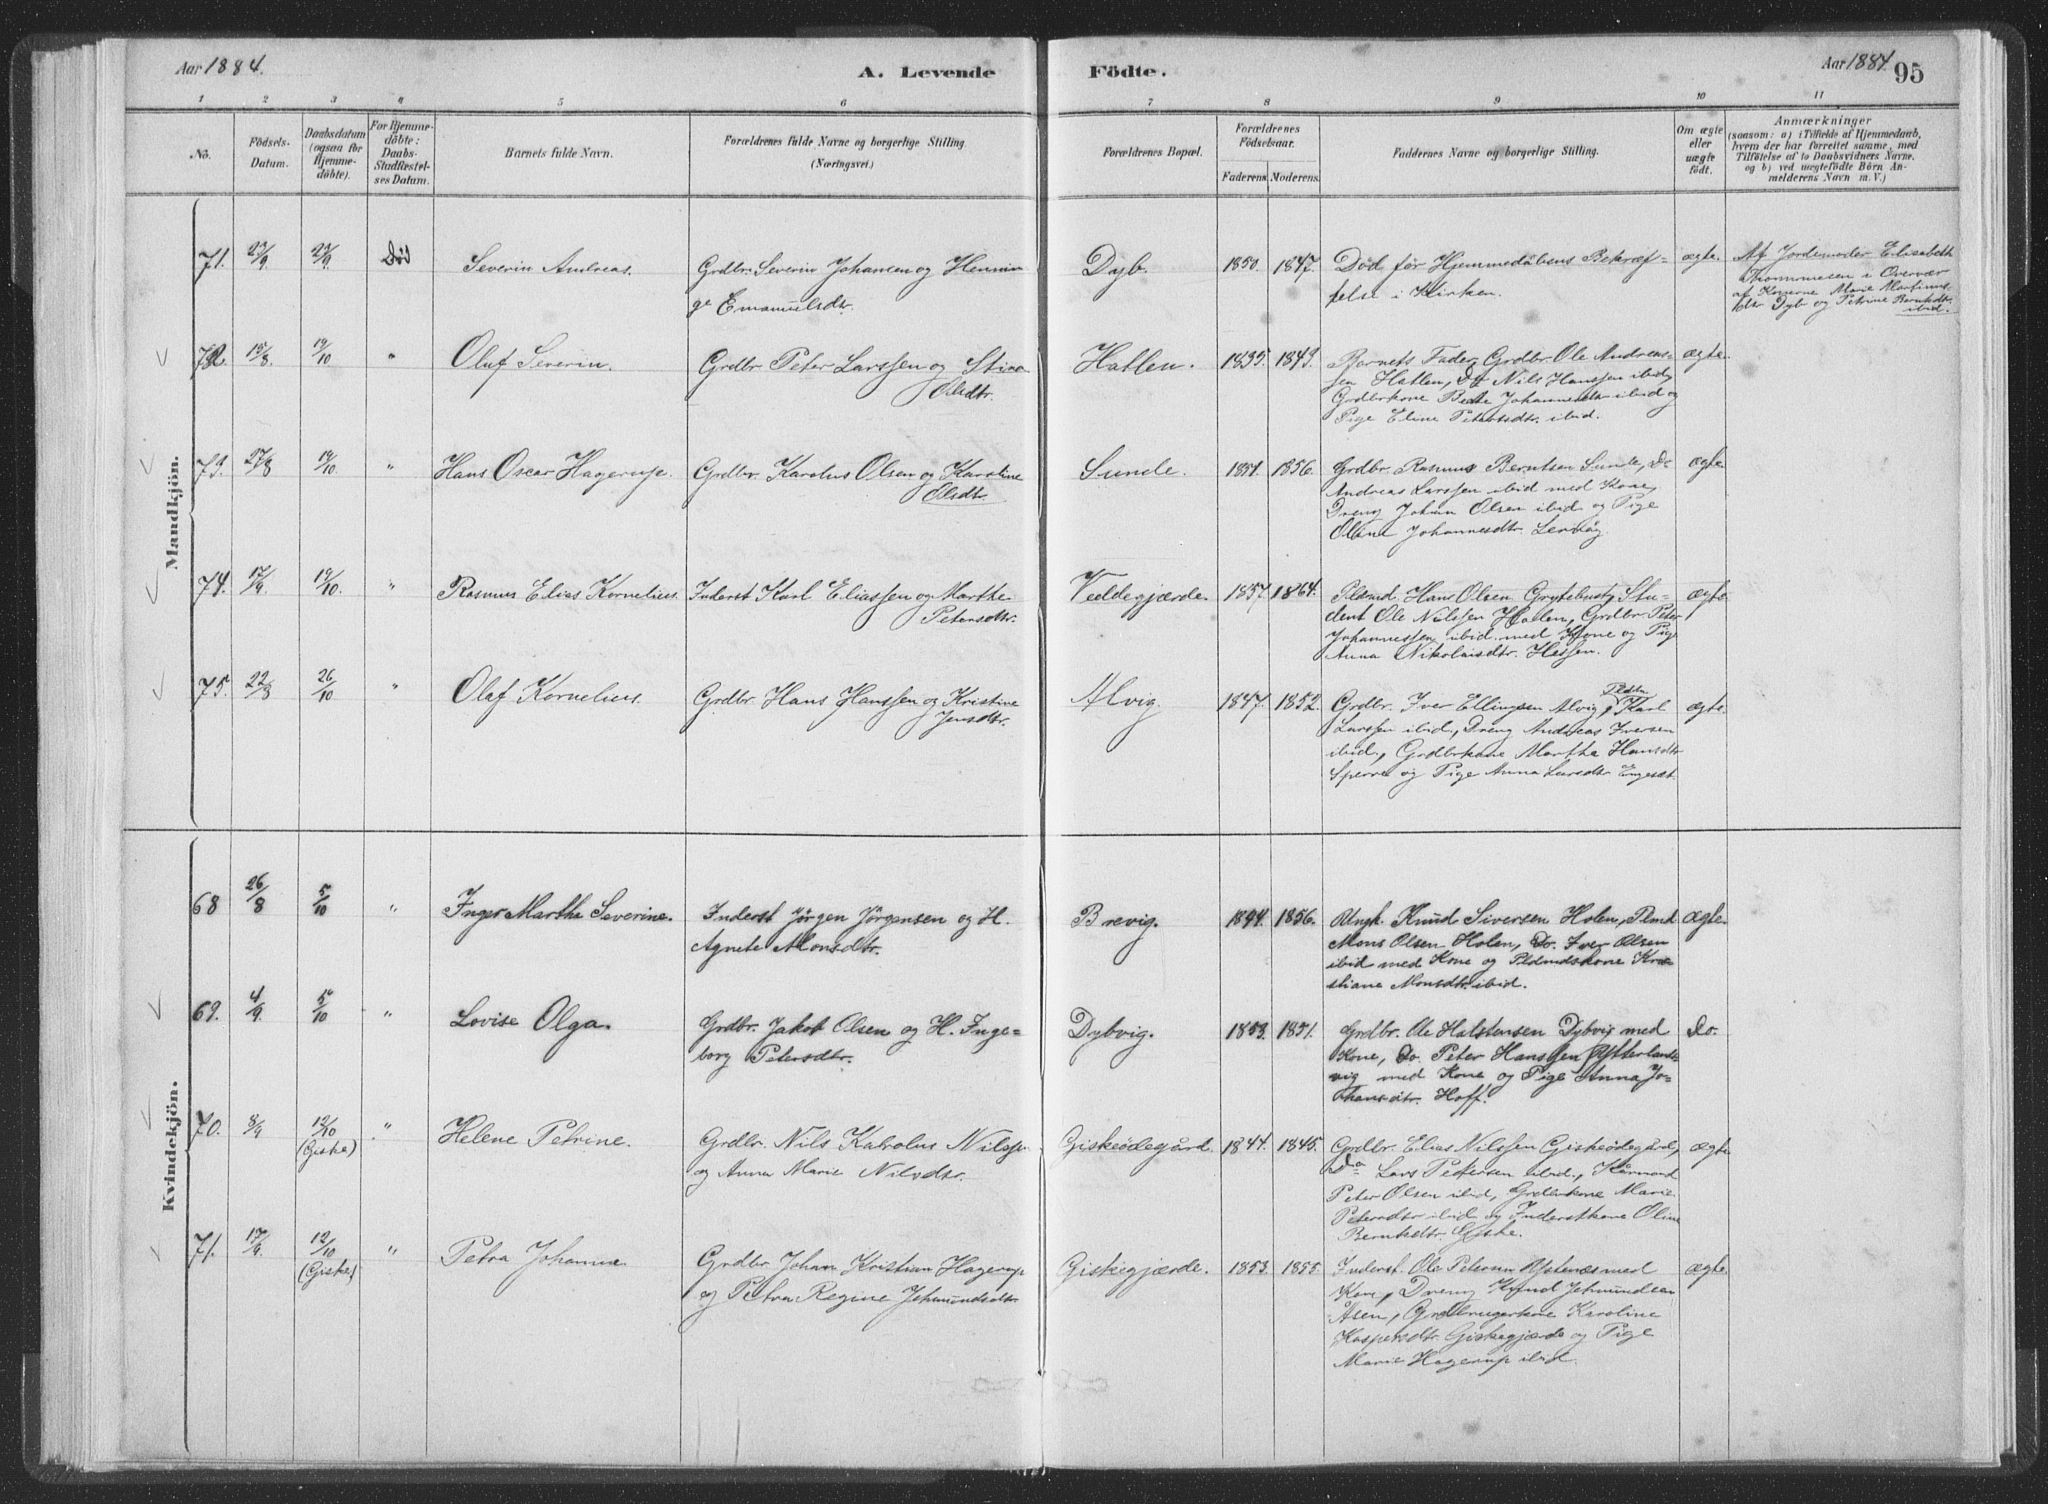 Aar 1884.
A. Levende Födte.
Aar 1884.
95
1 2 3 4 5 6 7 8 9 10 11
No.
Födsels-
Datum.
Daabsdatum
(ogsaa for
Hjemme-
döbte).
For Hjemme-
döbte:
Daabs-
Stadfæstel-
ses Datum.
Barnets fulde Navn.
Forældrenes fulde Navne og borgerlige Stilling
(Næringsvei.)
Forældrenes Bopæl.
Forældrenes
Födselsaar.
Faderens. Moderens.
Faddernes Navne og borgerlige Stilling.
Om ægte
eller
uægte
födt.
Anmærkninger
(saasom: a) i Tilfælde af Hjemmedaab,
hvem der har forrettet samme, med
Tilföielse af to Daabsvidners Navne,
og b) ved uægtefödte Börn An-
melderens Navn m. V.)
Mandkjön.
71. 23/9 23/9 Død Severin Andreas. Grdbr. Severin Johansen og Hennin
ge Emanuelsdtr.
Dyb. 1850. 1847. Død før Hjemmedåbens Bekræf-
telse i Kirken.
ægte.
Af Jordemoder Elisabeth
Thommesen i Overvær
af Konerne Marie Martinus
dtr Dyb og Petrine Berntsdtr
ibid.
72. 15/8 19/10 " Oluf Severin. Grdbr Peter Larssen og Stina
Olsdtr.
Hatlen. 1835. 1843. Barnets Fader, Grdbr. Ole Andreas-
sen Hatlen, Do Nils Hanssen ibid,
Grdbrkone Beate Johannesdtr ibid og
Pige Eline Petersdtr. ibid.
ægte.
73. 27/8 19/10. " Hans Oscar Hagerup. Grdbr. Karolus Olsen og Karoline
Olsdtr.
Sunde. 1851. 1856. Grdbr. Rasmus Berntsen Sunde, Do
Andreas Larssen ibid med Kone,
Dreng Johan Olsen ibid og Pige
Oline Johannesdtr. Lervåg.
ægte
74. 17/9. 19/10. " Rasmus Elias Kornelius. Inderst Karl Eliassen og Marthe
Petersdtr.
Veddegjærde. 1857. 1864. Pldsmd. Hans Olsen Grytebust, Stu-
dent Ole Nilssen Hatlen, Grdbr Peter
Johannessen ibid. med Kone og Pige
Anna Nikolaisdtr. Hessen.
ægte
75. 22/8 26/10 " Olaf Kornelius. Grdbr. Hans Hanssen og Kristine
Jensdtr.
Alvig. 1847. 1852. Grdbr. Iver Ellingsen Alvig, Karl
Larssen ibid., Dreng Andreas Iversen
ibid., Grdbrkone Martha Hansdtr
Sperre og Pige Anna Larsdtr. Engeset.
ægte.
Kvindekjön.
68 26/8 5/10 " Inger Martha Severine. Inderst Jørgen Jørgensen og H.
Agnete Monsdtr.
Brevig. 1844. 1856. Ungk. Knud Siversen Holen, Plmd
Mons Olsen Holen, Do. Iver Olsen
ibid med Kone og Pldsmdskone Kri
stiane Monsdtr. ibid.
ægte.
69. 4/9. 5/10 " Lovise Olga. Grdbr. Jakob Olsen og H. Inge-
borg Petersdtr.
Dybvig. 1853. 1851. Grdbr. Ole Halstensen Dybvig med
Kone, Do. Peter Hanssen Ytterlands-
vig med Kone og Pige Anna Jo-
hansdtr. Hoff.
Do.
70. 3/9 12/10 " Helene Petrine. Grdbr. Nils Karolus Nilssen
(Giske) og Anna Marie Nilsdtr.
Giskeödegård. 1844. 1845. Grdbr. Elias Nilssen Giskeödegård,
Do Lars Pettersen ibid., Kårmand
Peter Olsen ibid, Grdbrkone Marie
Petersdtr ibid og Inderstkone Oline
Berntsdtr. Giske.
ægte
71. 17/9. 12/10 " Petra Johanna Grdbr. Johan Kristian Hagerup
(Giske) og Petra Regine Jetmundsdtr.
Giskegjærde. 1853. 1855. Inderst. Ole Petersen Ystenæs med
Kone, Dreng Knud Jetmundsen
Åsen, Grdbrugerkone Karoline
Kaspersdtr. Giskegjærde og Pige
Marie Hagerup ibid.
ægte.